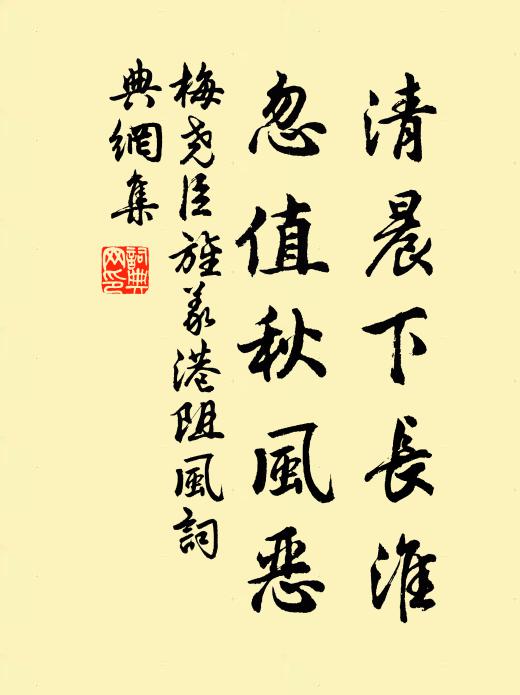 清晨下長淮
忽值秋風惡
梅堯臣旌義港阻風詞
典網集
詞典
網印